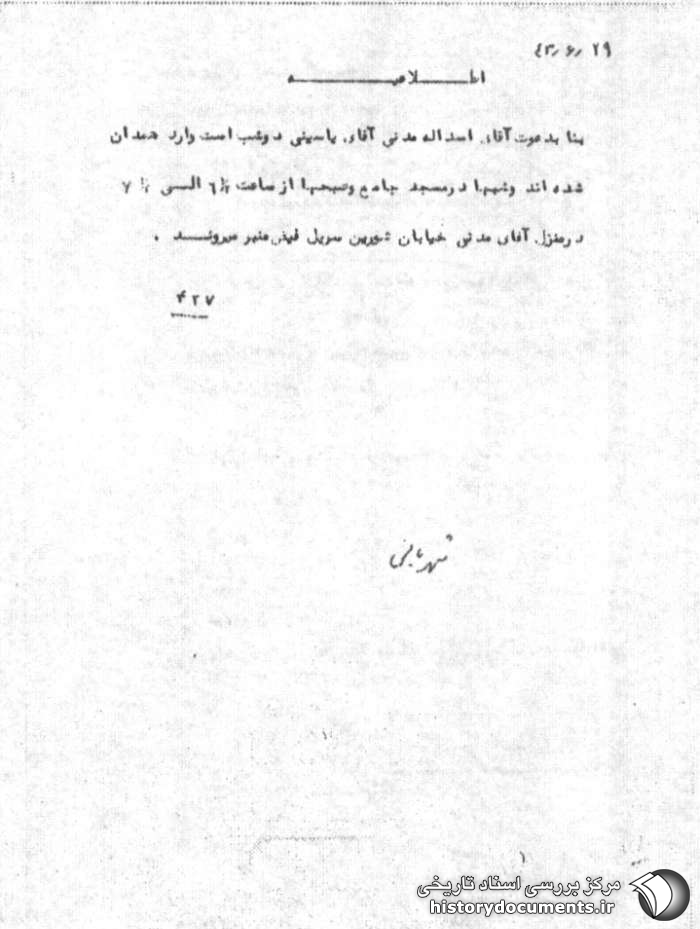 ۴۳٫۶٫۲۹
اطـــلاعیـــــــه
بنا بدعوت آقای اسداله مدنی آقای یاسینی دوشب است وارد همدان
شده اند وشبها درمسجد جامع وصبحها از ساعت ۶½ الــی ۷½
درمنزل آقای مدنی خیابان شورین سرپل فیض منبر میرونــد .
۴۲۷
شهربانی
مرکز بررسی اسناد تاریخی
historydocuments.ir